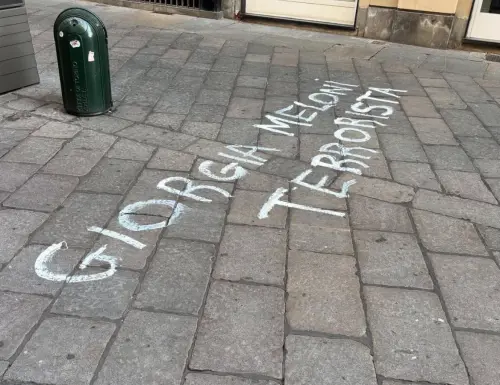 GIORGIA MELONI
TERRORISTA